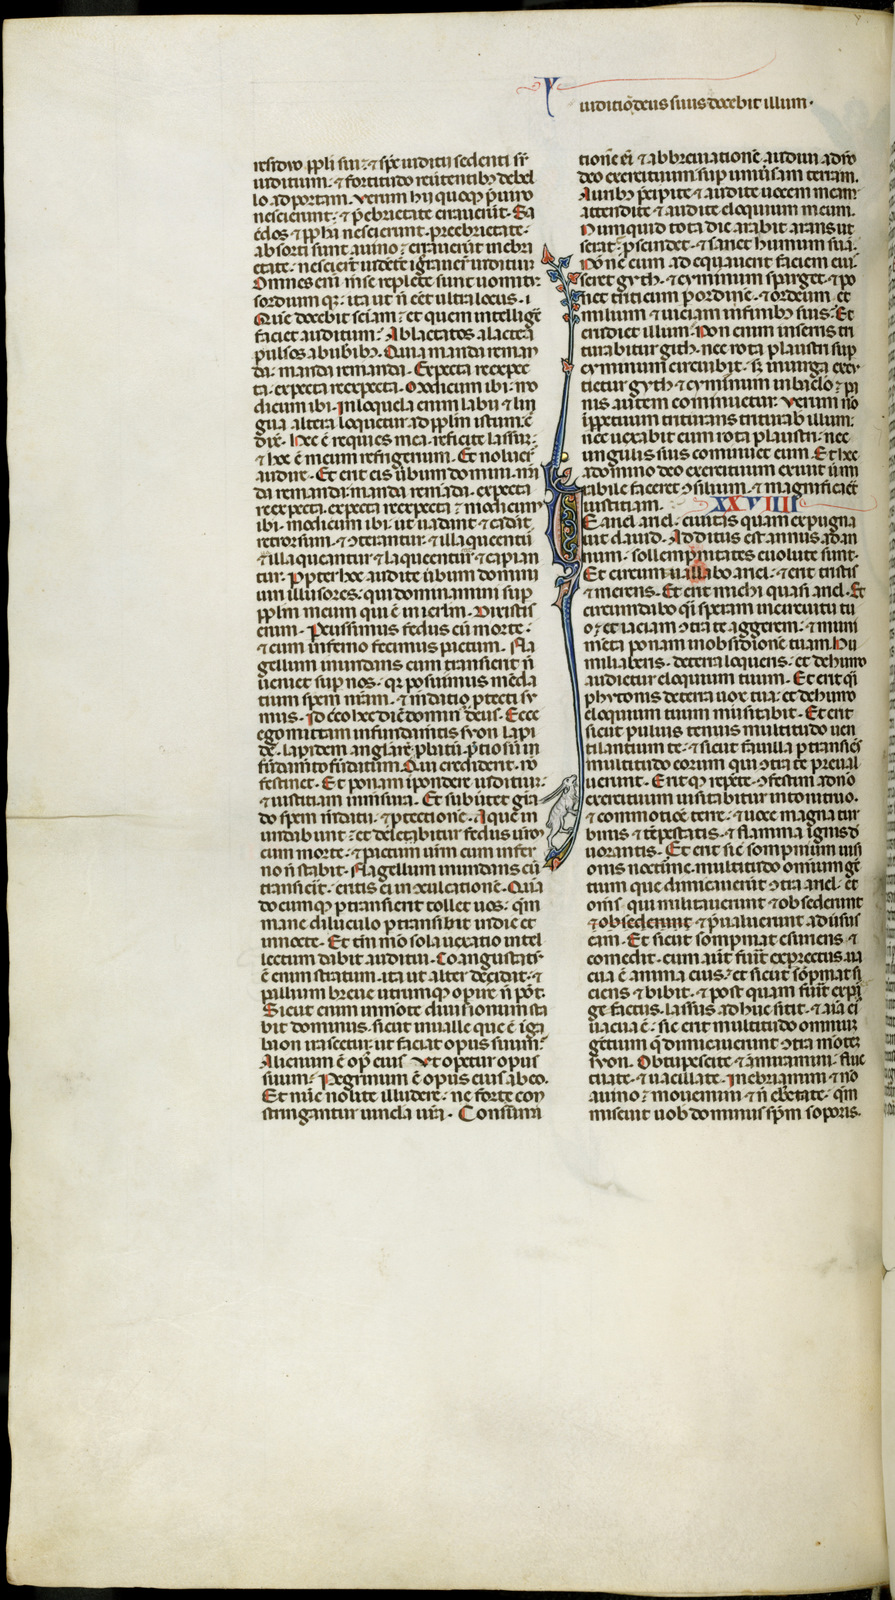 iuditio deus suus docebit illum.
residuo ppli sui: & spc iuditii sedenti sr
iuditium: & fortitudo reutentib; debel
lo ad portam. Verum hii quoq; p uino
nescierunt: & p ebrietate erauerut. Sa
cdos & ppha nescierunt pre ebrietate:
absorti sunt a uino: errauerut in ebri
etate. nescierut uidete ignauer iuditiu
Omnes eni mse replete sunt uomitu
sordium q: ita ut n eet ultra locus. i
Que docebit sciam: et quem intellige
faciet auditum: Ablactatos a lacte a
pulsos ab ubib;. Quia manda reman
da: manda remanda. Expecta reexpec
ta. expecta reexpecta. Modicum ibi. mo
dicum ibi. In loquela enim labii & lin
gua altera loquetur ad pplm istum. e
dix. hec e requies mea. reficite lassu:
& hec e meum refrigerium. Et nolue
audire. Et erit eis ubum domini. m
da remanda. manda remada. expecta
reexpecta. expecta reexpecta: modicum
ibi. modicum ibi. ut uadant & cadat
retrorsum. & oterantur. & illaqueentu
& illaqueantur & laqueentur & capian
tur. Ppter hec audite ubum domini
uiri illusores: qui dominamini sup
pplm meum qui e in ierlm. Dixistis
enim. Peussimus fedus cu morte:
& cum inferno fecimus pactum. Fla
gellum inundans cum transierit n
ueniet sup nos. q posuimus meda
tium spem nram. & mdatio ptecti su
mus. Id eco hec die domin deus. Ecce
ego mittam in fundamtis syon lapi
de. lapidem anglare pbatu. ptiosu in
fudamto fudatum. Qui crediderit. no
festinet. Et ponam i pondere iuditiu:
& iustitiam in misura. Et subuertet gra
do spem mdatii. & ptectione. Aque in
undabunt: et delebitur fedus uro
cum morte. & pactum urm cum infer
no n stabit. Flagellum inundans cu
transierit. eritis ei in oculcatione. Qua
documq; ptransierit tollet uos: qm
mane diluculo ptransibit in die et
in nocte. Et tm mo sola uexatio intel
lectum dabit auditui. Coangustatu
e enim stratum. ita ut alter decidat. &
pallium breue utrumq; opire n pot.
Sicut enim in mote diuisionum sta
bit dominus. sicut in ualle que e i ga
baon irascetur. ut faciat opus suum:
Alienum e op eius. Ut opetur opus
suum: Pegrinum e opus eius ab eo.
Et nuc nolite illudere. ne forte con
stringantur uincla ura. Consum
tione eni & abbreuiatione audiui a dno
deo exercituum sup uniusam terram.
Aurib; pcipite & audite uocem meam
attendite & audite eloquium meum.
Numquid tota die arabit arans ut
serat. pscindet. & sariet humum sua.
None cum ad equauerit faciem eius
seret gyth. & cyminum sparget. & po
net triticum p ordine. & ordeum et
milium & uiciam in finib; suis. Et
erudiet illum. Non enim in serris tri
turabitur gith. nec rota plaustri sup
cyminum circuibit. s; in uirga excu
tietur gyth & cyminum in baclo: & pa
nis autem comminuetur. Verum no
i ppetuum triturans triturab illum:
nec uexabit eum rota plaustri. nec
ungulis suis comminuet eum. Et hec
a domino deo exercituum exiuit ut m
irabile faceret osilium. & magnificaret
iustitiam. XXVIIII
E ariel ariel. ciuitas quam expugna
uit dauid. Additus est annus ad an
num. sollempnitates euolute sunt.
Et circum uallabo ariel. & erit tristis
& merens. Et erit michi quasi ariel. Et
circumdabo qsi speram in circuitu tu
o. et iaciam otra te aggerem. & muni
meta ponam in obsidione tuam. Hu
miliaberis. de terra loqueris. et de humo
audietur eloquium tuum. Et erit qi
phytonis de terra uox tua. et de humo
eloquium tuum musitabit. Et erit
sicut puluis tenuis multitudo uen
tilantium te. & sicut fauilla ptransies
multitudo eorum qui otra te preual
uerunt. Eritq; repete. ofestim a dno
exercituum uisitabitur in tonitruo.
& commotioe terre. & uoce magna tur
binis & tepestatis. & flamma ignis d
uorantis. Et erit sic sompnium uisi
onis nocturne. multitudo omium ge
tium que dimicauerut otra ariel. et
oms qui militauerunt & obsederunt
& obsederunt & p ualuerunt aduisus
eam. Et sicut sompniat esuriens &
comedit. cum aut fuit expgectus. ua
cua e anima eius: et sicut sopniat si
ciens & bibit. & post quam fuit expi
ge factus. lassus adhuc sitit. & aia ei
uacua e. sic erit multitudo omium
gentium q dimicauerunt otra mote
syon. Obstupescite & amiramini. fluc
tuate. & uacillate. Inebriamini & no
a uino: mouemini & n ebrietate. qm
miscuit uob dominus spm soporis.